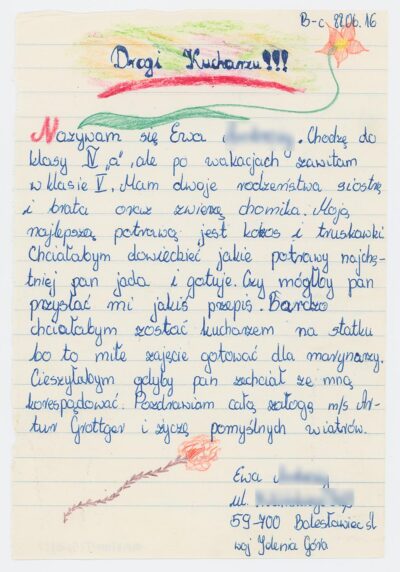 B-c, 82.06.16
Drogi Kucharzu!!!
Nazywam się Ewa . Chodzę do
klasy IV „a”, ale po wakacjach zawitam
w klasie V. Mam dwoje rodzeństwa siostrę
i brata oraz zwierzę chomika. Moją
najlepszą potrawą jest kokos i truskawki
Chciałabym dowiedzieć jakie potrawy najchę-
tniej pan jada i gotuje. Czy mógłby pan
przysłać mi jakiś przepis. Bardzo
chciałabym zostać kucharzem na statku
bo to miłe zajęcie gotować dla marynarzy.
Cieszyłabym gdyby pan zachciał ze mną
korespądować. Pozdrawiam całą załogę m/s Ar-
tur Grottger i życzę pomyślnych wiatrów.
Ewa
ul.
59-700 Bolesławiec śl
woj Jelenia Góra